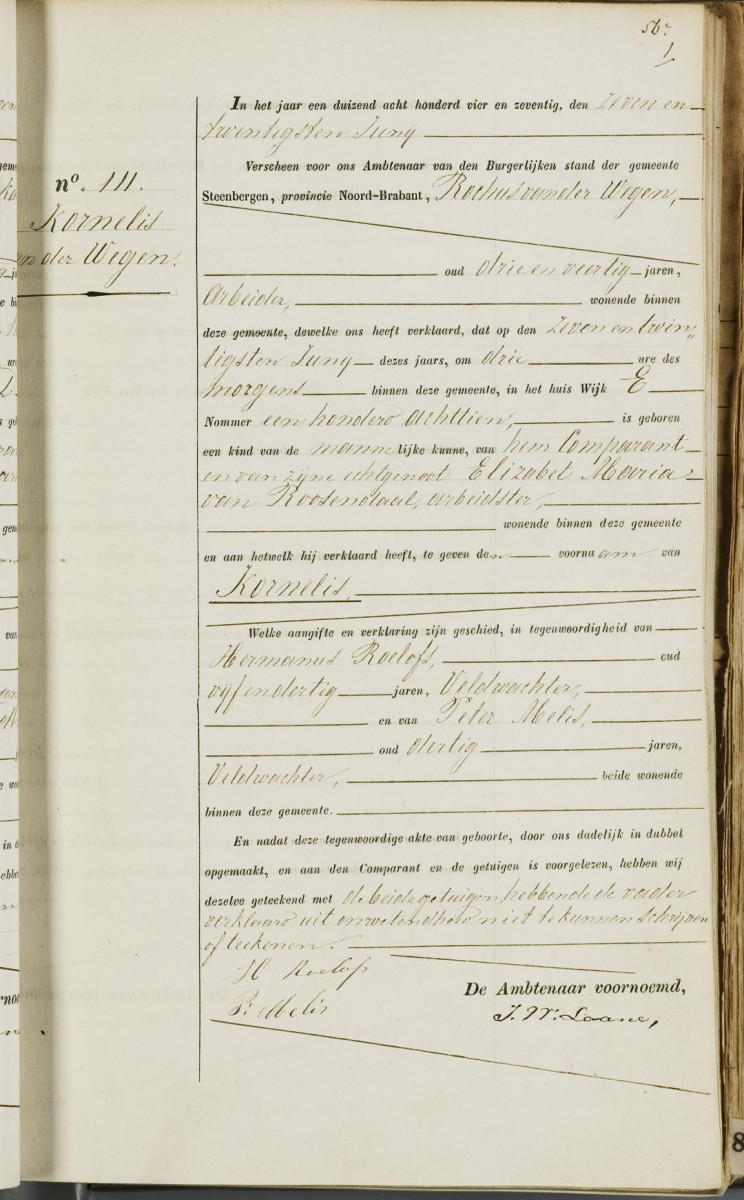 56.
1
In het jaar een duizend acht honderd vier en zeventig, den zeven en
twintigsten Juny
Verscheen voor ons Ambtenaar van den Burgerlijken stand der gemeente
Steenbergen, provincie Noord-Brabant, Rochus van der Wegen,
no. 111.
Kornelis
van der Wegen.
oud drie en veertig jaren,
Arbeider, wonende binnen
deze gemeente, dewelke ons heeft verklaard, dat op den zeven en twin„
tigsten Juny dezes jaars, om drie ure des
morgens binnen deze gemeente, in het huis Wijk E
Nommer een honderd achttien, is geboren
een kind van de mannelijke kunne, van hem Comparant
en van zijne echtgenoot Elizabet Maria
van Roosendaal, arbeidster,
wonende binnen deze gemeente
en aan hetwelk hij verklaard heeft, te geven den voornaam van
Kornelis,
Welke aangifte en verklaring zijn geschied, in tegenwoordigheid van
Hermanus Roelofs, oud
vijfendertig jaren, Veldwachter,
en van Peter Melis,
oud dertig jaren,
Veldwachter, beide wonende
binnen deze gemeente.
En nadat deze tegenwoordige akte van geboorte, door ons dadelijk in dubbel
opgemaakt, en aan den Comparant en de getuigen is voorgelezen, hebben wij
dezelve geteekend met de beide getuigen, hebbende de vader
verklaard uit onwetendheid niet te kunnen schrijven
of teekenen.
H Roelofs
P: Melis
De Ambtenaar voornoemd,
J. W. Laane,
8